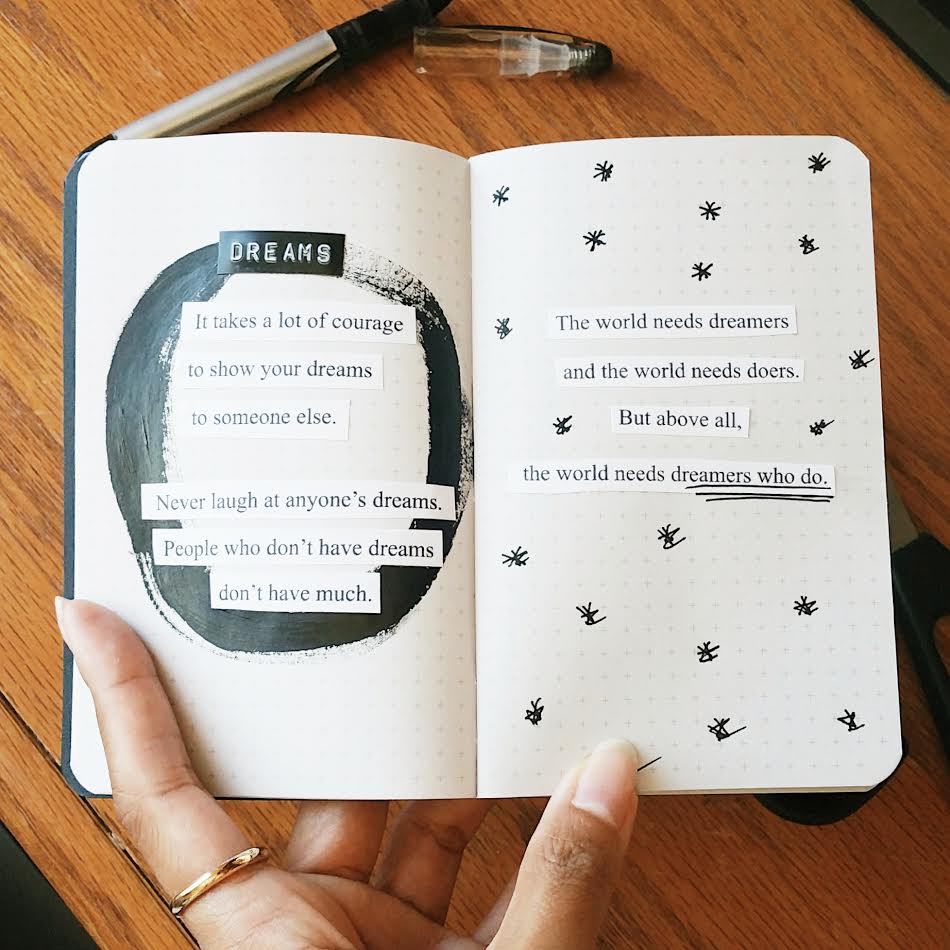 DREAMS
It takes a lot of courage
to show your dreams
to someone else.
Never laugh at anyone's dreams.
People who don't have dreams
don't have much.
The world needs dreamers
and the world needs doers.
But above all,
the world needs dreamers who do.